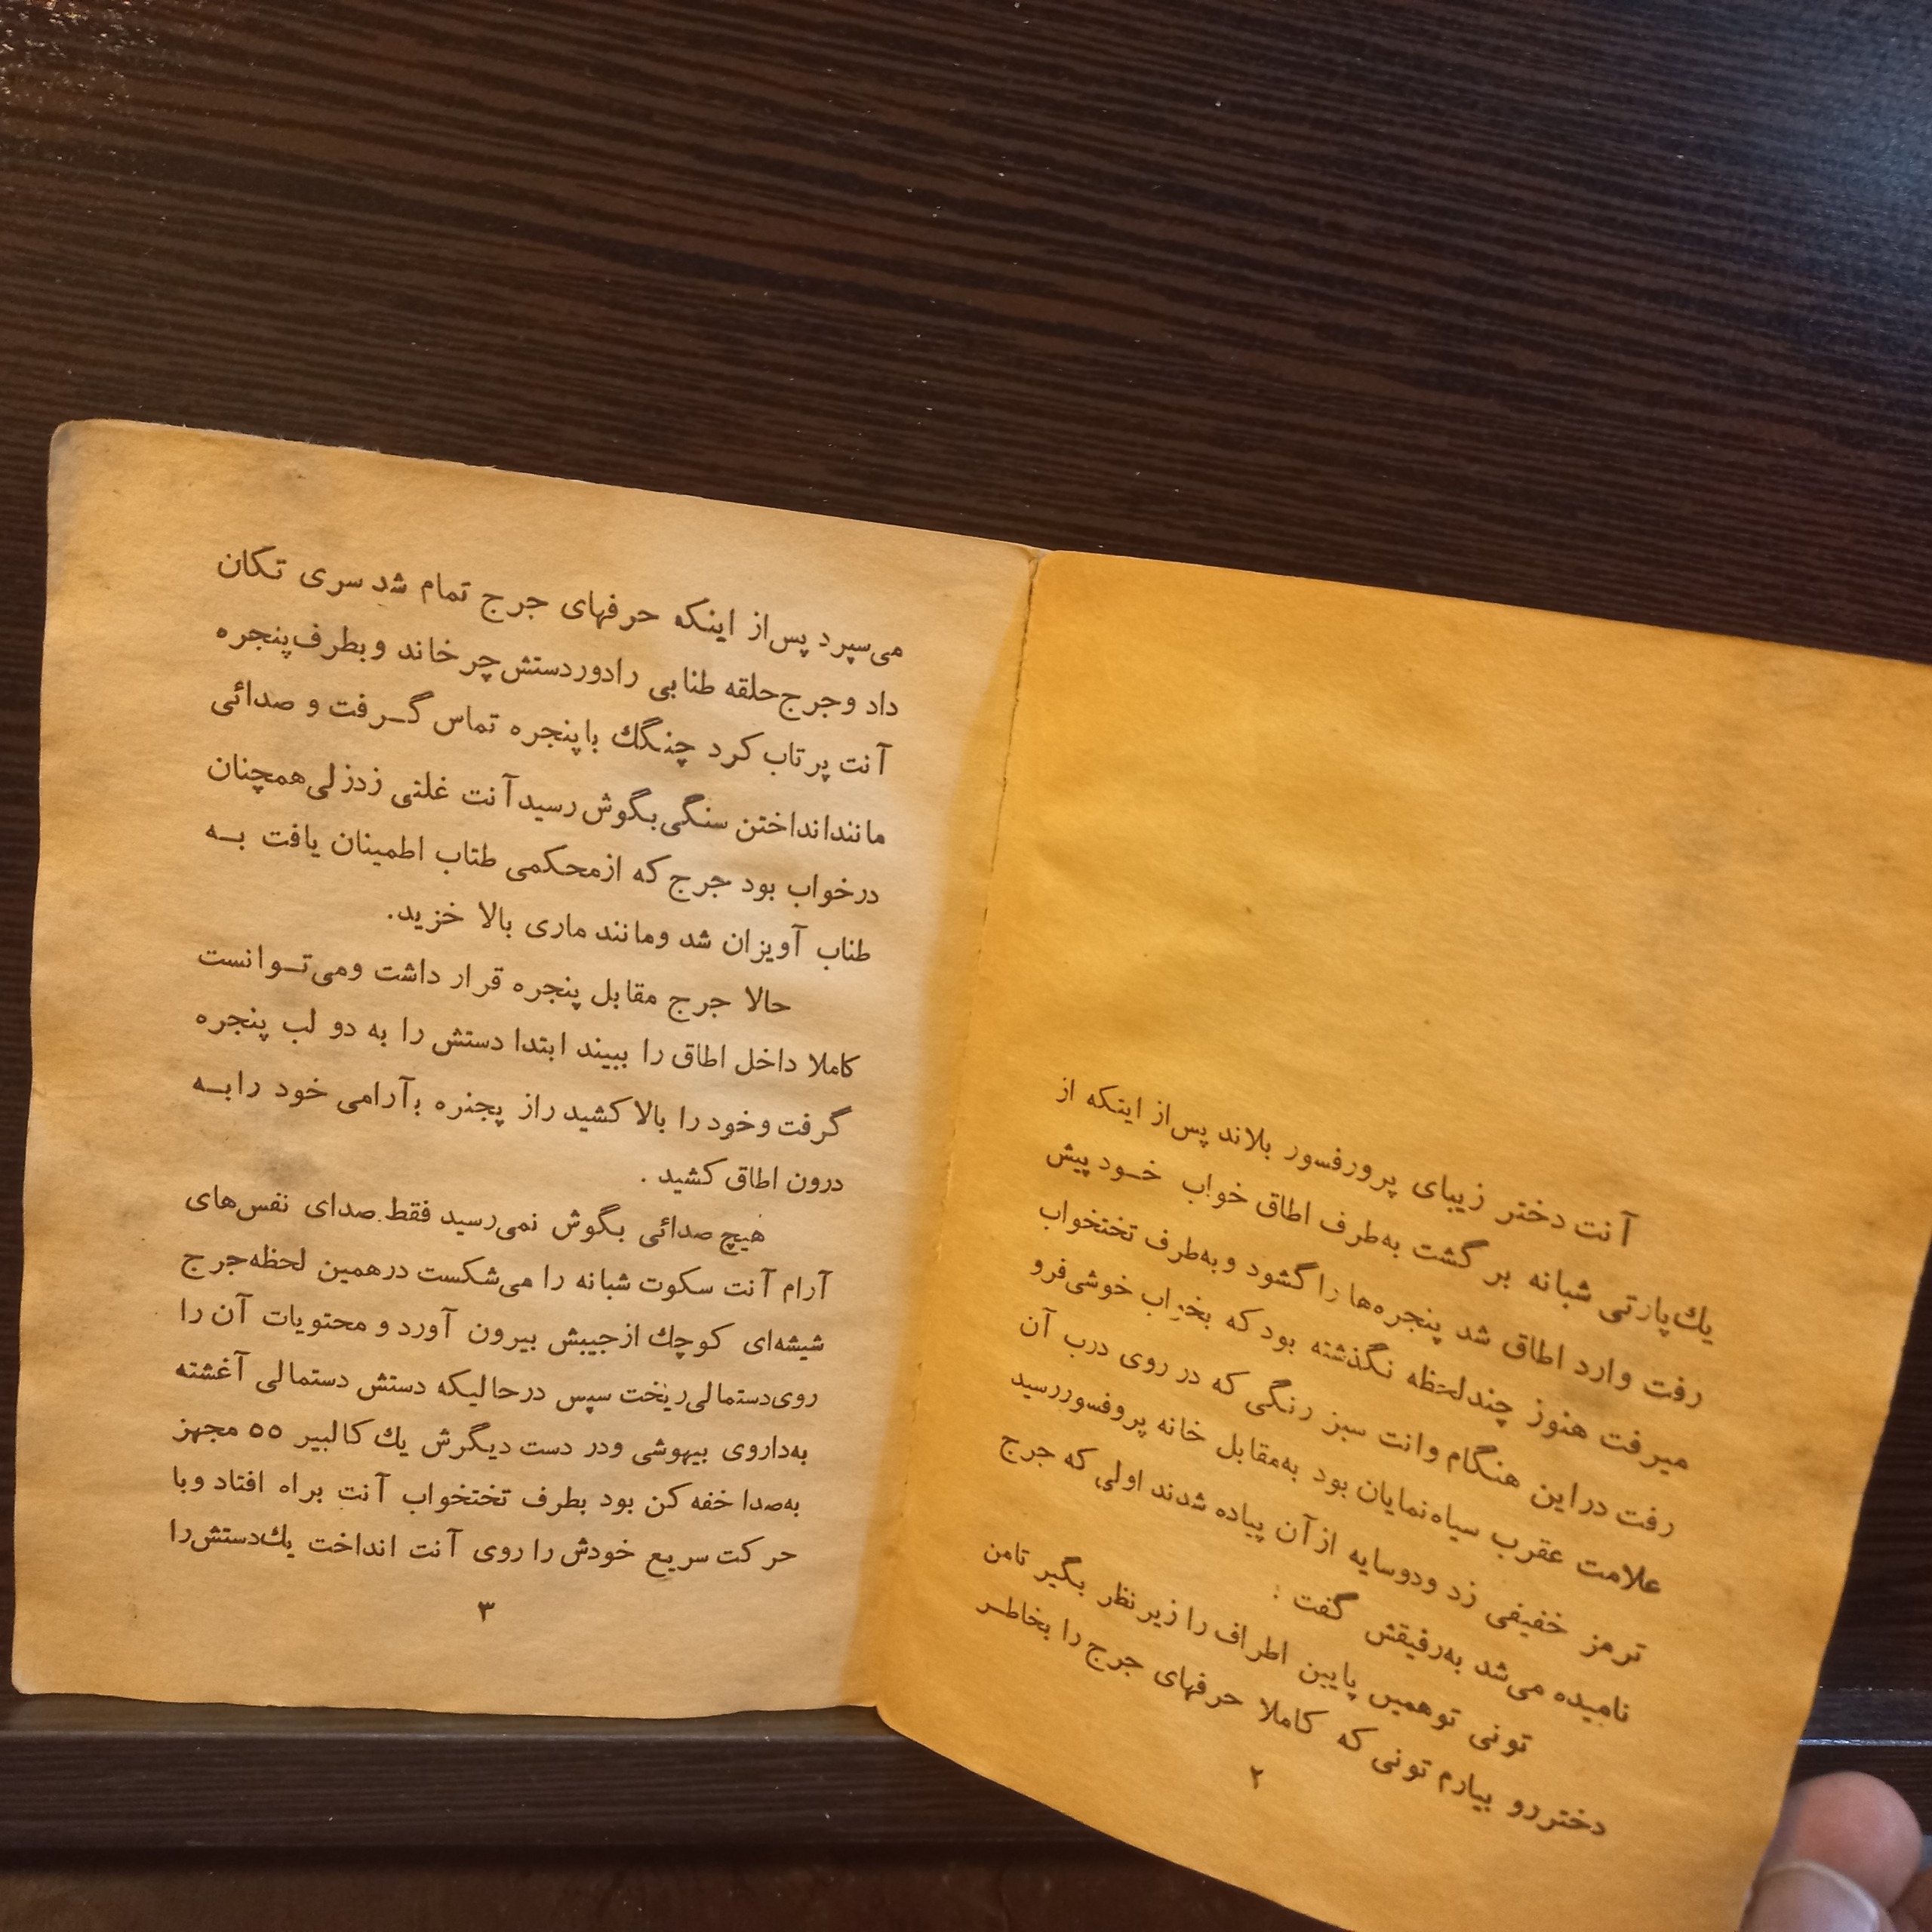 آنت دختر زیبای پرورفسور بلاند پس‌از اینکه از
یك‌پارتی شبانه بر گشت به‌طرف اطاق خواب خـود پیش
رفت وارد اطاق شد پنجره‌ها را گشود و به‌طرف تختخواب
میرفت هنوز چندلحظه نگذشته بود که بخواب خوشی‌فرو
رفت دراین هنگام وانت سبز رنگی که در روی درب آن
علامت عقرب سیاه‌نمایان بود به‌مقابل خانه پروفسوررسید
ترمز خفیفی زد ودوسایه ازآن پیاده شدند اولی که جرج
نامیده می‌شد به‌رفیقش گفت :
تونی توهمین پایین اطراف را زیرنظر بگیر تامن
دختررو بیارم تونی که کاملا حرفهای جرج را بخاطـر
۲
می‌سپرد پس‌از اینکه حرفهای جرج تمام شد سری تکان
داد وجرج‌حلقه طنابی رادوردستش‌چرخاند وبطرف‌پنجره
آنت پرتاب کرد چنگك باپنجره تماس گـرفت و صدائی
مانندانداختن سنگی‌بگوش‌رسیدآنت غلتی زدزلی‌همچنان
درخواب بود جرج که ازمحکمی طناب اطمینان یافت بـه
طناب آویزان شد ومانند ماری بالا خزید.
حالا جرج مقابل پنجره قرار داشت ومی‌تـوانست
کاملا داخل اطاق را ببیند ابتدا دستش را به دو لب پنجره
گرفت وخود را بالاکشید راز پجنره بآرامی خود رابـه
درون اطاق کشید .
هیچ صدائی بگوش نمی‌رسید فقط صدای نفس‌های
آرام آنت سکوت شبانه را می‌شکست درهمین لحظه‌جرج
شیشه‌ای کوچك ازجیبش بیرون آورد و محتویات آن را
روی‌دستمالی‌ریخت سپس درحالیکه دستش دستمالی آغشته
به‌داروی بیهوشی ودر دست دیگرش یك کالبیر ۵۵ مجهز
به‌صدا خفه‌کن بود بطرف تختخواب آنت براه افتاد وبا
حرکت سریع خودش را روی آنت انداخت یك‌دستش‌را
۳